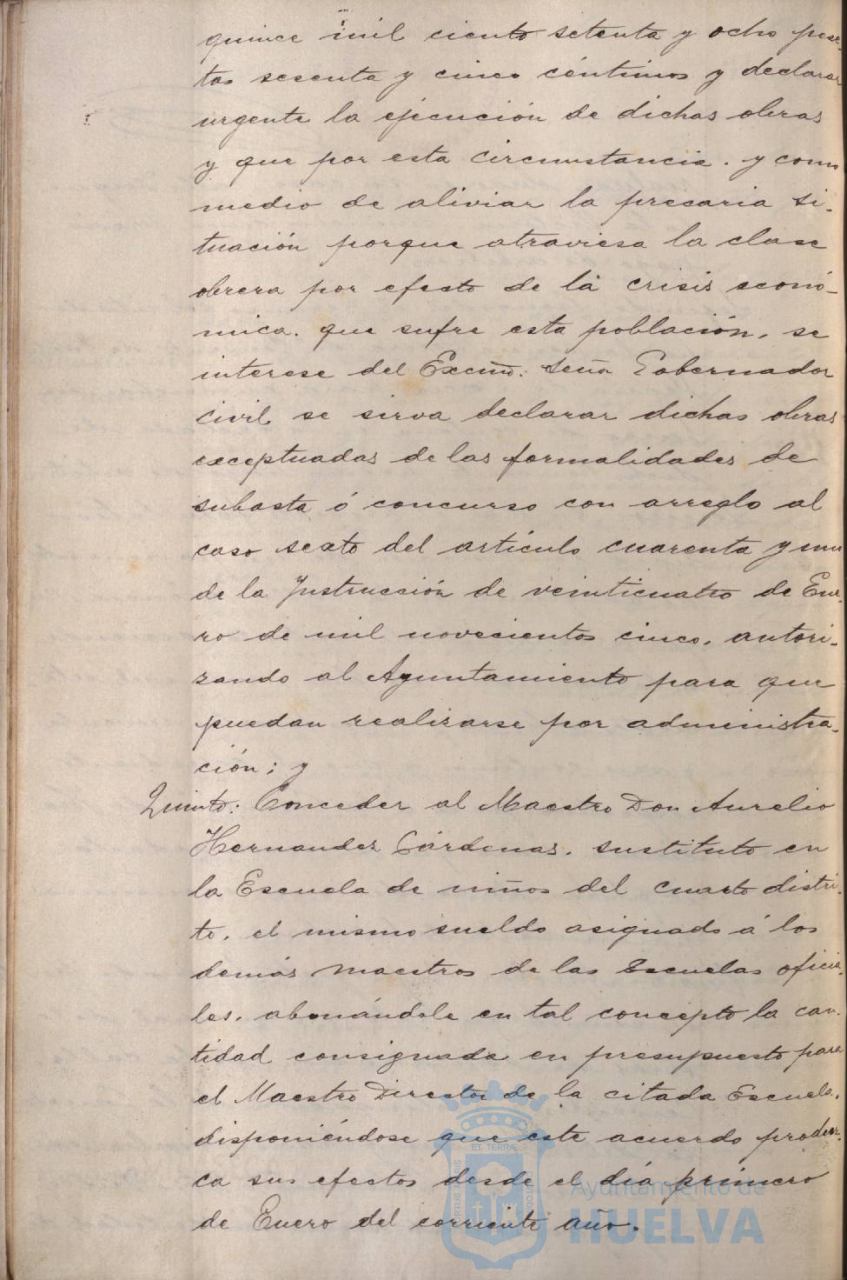 quince mil ciento setenta y ocho pese-
tas sesenta y cinco céntimos y declarar
urgente la ejecución de dichas obras
y que por esta circunstancia. y como
medio de aliviar la precaria si-
tuación porque atraviesa la clase
obrera por efecto de la crisis econó-
mica. que sufre esta población, se
interese del Excmo. Señor Gobernador
civil se sirva declarar dichas obras
exceptuadas de las formalidades de
subasta ó concurso con arreglo al
caso sexto del artículo cuarenta y uno
de la Instrucción de veinticuatro de Ene-
ro de mil novecientos cinco, autori-
zando al Ayuntamiento para que
puedan realizarse por administra-
ción; y
Quinto: Conceder al Maestro Don Aurelio
Hernandez Cárdenas. sustituto en
la Escuela de niños del cuarto distri-
to, el mismo sueldo asignado á los
demás maestros de las Escuelas oficia-
les, abonándole en tal concepto la can-
tidad consignada en presupuesto para
el Maestro Director de la citada Escuela,
disponiéndose que este acuerdo produz-
ca sus efectos desde el día primero
de Enero del corriente año.
Ayuntamiento de
HUELVA